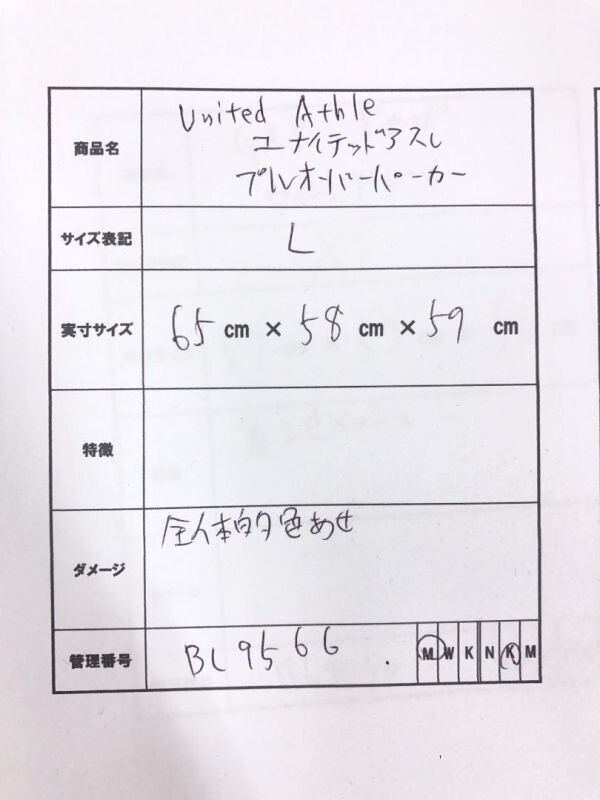 商品名
United Athle
ユナイテッドアスレ
プルオーバーパーカー
サイズ表記
L
実寸サイズ
65 cm × 58 cm × 59 cm
特徴
ダメージ
全体的色あせ
管理番号
BL9566 . M W K N K M